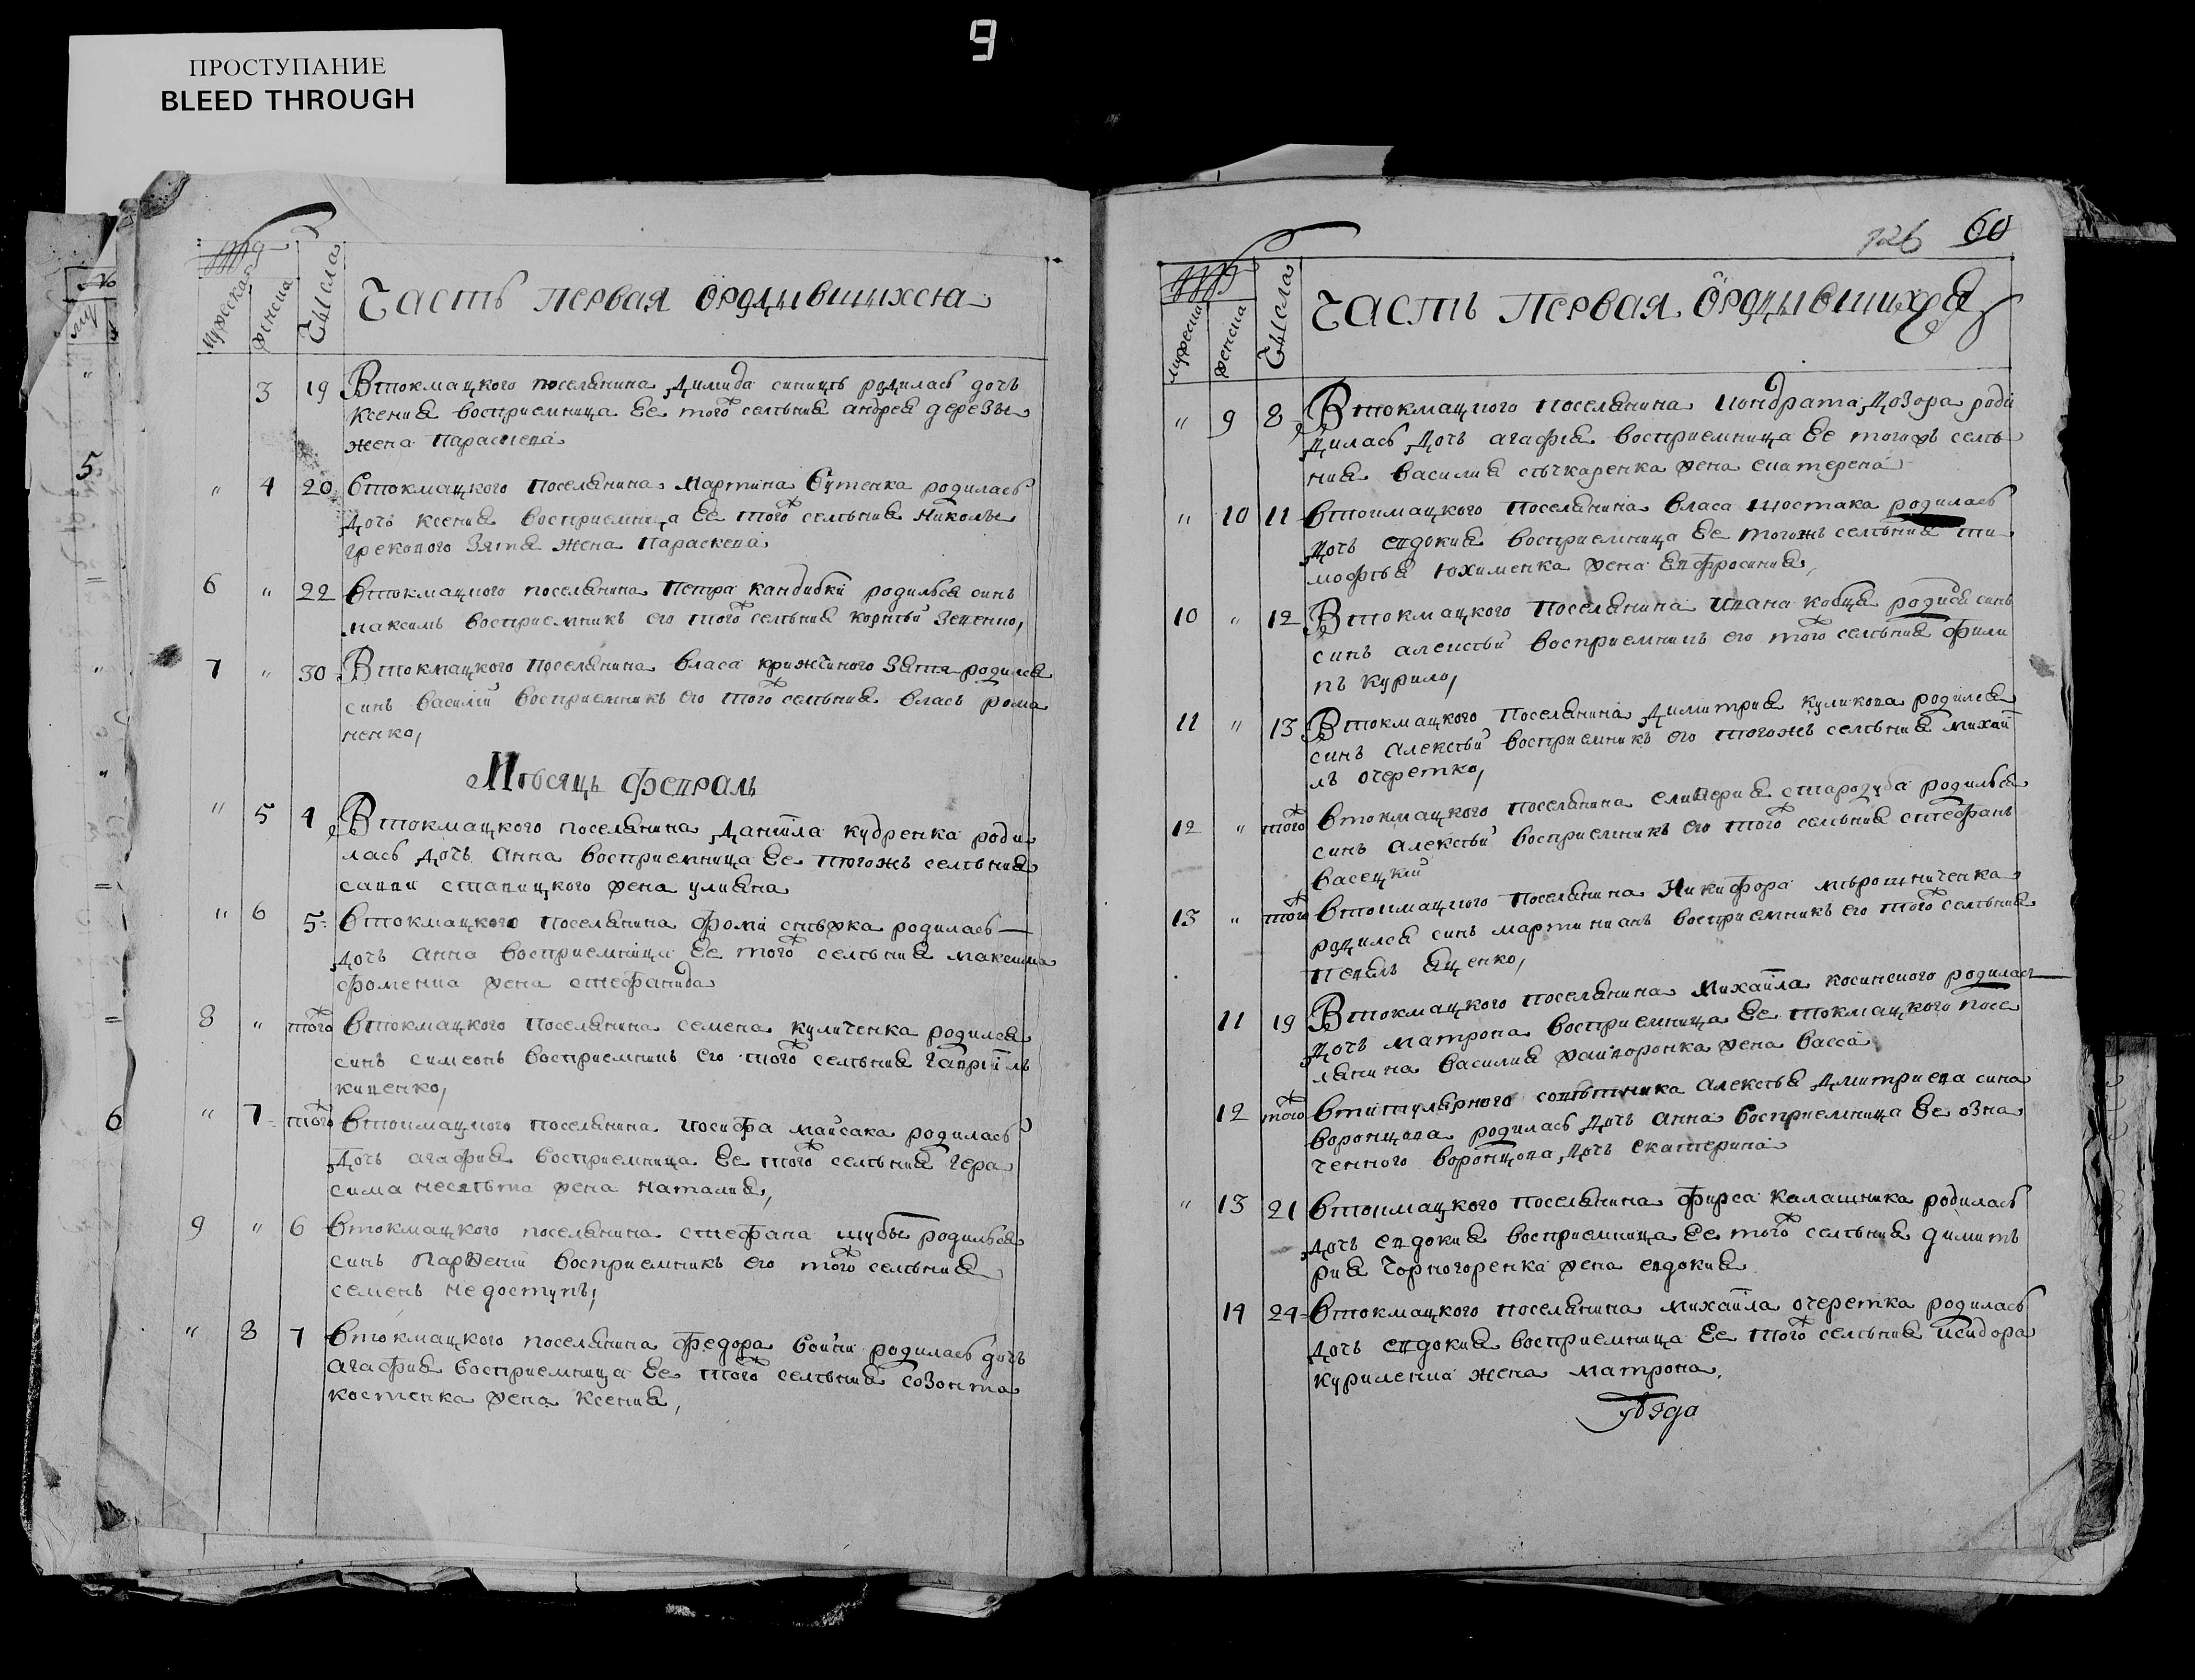 9
ПРОСТУПАНИЕ
BLEED THROUGH
мужеска
женска
Числа
Часть первая ѻродившихся
3 19 Втокмацкого поселянина Димида синицѣ родилась дочь
Ксения восприемница Ее того ж селенія андрея дерезы
жена Параскева
" 4 20 Втокмацкого поселянина Мартина Бутенка родилась
Дочь Ксения восприемница Ее того ж селенія Николы
грекового Зятя жена Параскева
6 " 22 Втокмацкого поселянина Петра кандибки родилься синъ
максимъ восприемникъ его того ж селенія корнѣй Зененко,
7 " 30 Втокмацкого Поселянина власа крижчиного Зятя родился
синъ василій восприемникъ его того ж селенія власъ рома
ненко,
Мѣсяцъ февраль
" 5 4 Втокмацкого поселянина Даніила кудренка роди
лась Дочь Анна восприемница Ее тогожъ селенія
саввы ставицкого жена улияна
" 6 5 Втокмацкого Поселянина фомы родилась
Дочь Анна восприемница Ее того ж селенія максима
фоменка жена стефанида
8 " того ж Втокмацкого Поселянина семена куличенка родился
синъ симеонъ восприемникъ его того ж селенія Гавріилъ
киценко,
" 7 того ж Втокмацкого поселянина иосифа майсака родилась
Дочь агафия восприемница Ее того ж селенія Гера
сима жена Наталия,
9 " 6 Втокмацкого поселянина стефана шубы родилься
синъ Парѳеній восприемникъ его того ж селенія
семенъ недоступъ,
" 8 7 Втокмацкого поселянина федора Войни родилась дочь
агафия восприемница Ее того ж селенія созонта
костенка жена Ксения,
60
мужеска
женска
Числа
Часть Первая ѻродившихся
" 9 8 Втокмацкого поселянина Кондрата Дозора роди
дилась Дочь агафия восприемница Ее тогожъ селе
ния василия слѣчкаренка жена екатерена
" 10 11 Втокмацкого Поселянина власа шостака родилась
Дочь евдокия восприемница Ее тогожъ селенія ти
мофѣя Юхименка жена Евфросиния,
10 " 12 Втокмацкого Поселянина ивана кобця родися синъ
синъ алексѣй восприемникъ его того ж селенія фили
пъ курило,
11 " 13 Втокмацкого Поселянина Димитрия куликова родился
синъ Алексѣй восприемникъ его тогожъ селенія михаи
лъ очеретко,
12 " того ж Втокмацкого поселянина елиѵѳерия стародуба родилься
синъ Алексѣй восприемникъ его того ж селенія стефанъ
васецкій
13 " того ж Втокмацкого поселянина Никифора мѣрошниченка
родился синъ мартиниянъ восприемникъ его того ж селенія
Павелъ Яценко,
11 19 Втокмацкого поселянина Михаила косинского родилась
Дочь матрона восприемница Ее токмацкого посе
лянина василия жена васса
12 того ж Втитулярного совѣтника Алексѣя Дмитриева сина
воронцова родилась Дочь Анна восприемница Ее озна
ченного воронцова Дочь екатерина
" 13 21 Втокмацкого поселянина фирса калашника родилась
Дочь евдокия восприемница Ее того ж селенія димит
рия Чорногоренка жена евдокия
14 24 Втокмацкого поселянина михаила очеретка родилась
Дочь евдокия восприемница Ее того ж селенія исидора
куриленка жена матрона.